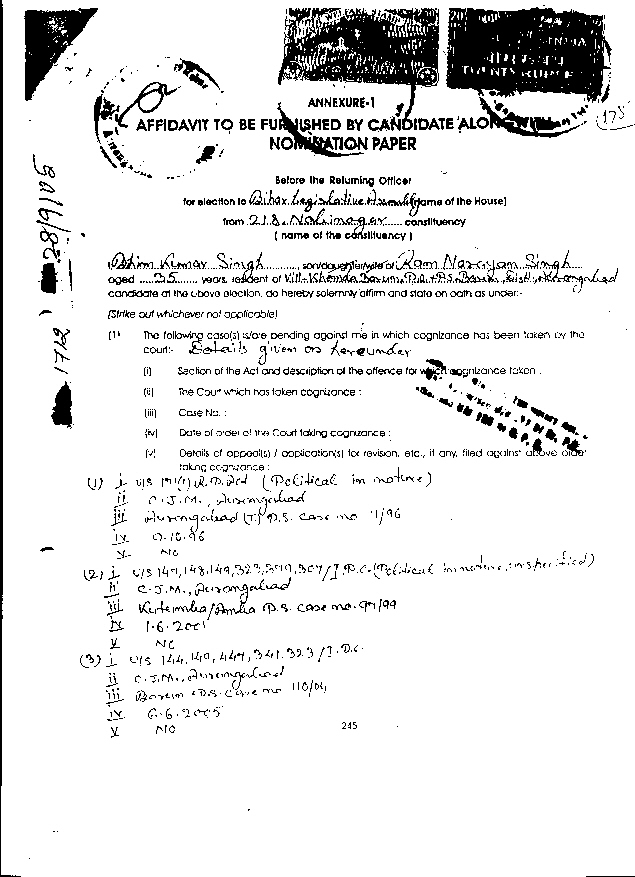 INDIA
TWENTY RUPEES
175
ANNEXURE-1
AFFIDAVIT TO BE FURNISHED BY CANDIDATE ALONGWITH
NOMINATION PAPER
Before the Returning Officer
for election to Bihar Legislative Assembly (name of the House)
from 218. Nabinagar constituency
( name of the constituency )
I Kumar Singh son/daughter/wife of Ram Narayan Singh
aged 35 years, resident of Vill- P.O.+P.S. Dist.
candidate at the above election, do hereby solemnly affirm and state on oath as under:-
(Strike out whichever not applicable)
(1) The following case(s) is/are pending against me in which cognizance has been taken by the
court:- Details given as hereunder
(i) Section of the Act and description of the offence for which cognizance taken :
(ii) The Court which has taken cognizance :
(iii) Case No. :
(iv) Date of order of the Court taking cognizance :
(v) Details of appeal(s) / application(s) for revision, etc., if any, filed against above order
taking cognizance :
(1) i U/S (Political in nature)
ii C.J.M., Aurangabad
iii Aurangabad (T) P.S. case no
iv
v NO
(2) i U/S 147,148,149,323, 307/I.P.C. (Political in nature,
ii C.J.M., Aurangabad
iii Kutumba/Amba P.S. case no. 99/99
iv 1.6.2001
v NO
(3) i U/S 144,149,447,341,323/I.P.C.
ii C.J.M., Aurangabad
iii P.S. Case no 110/04
iv 6.6.2005
v NO
245